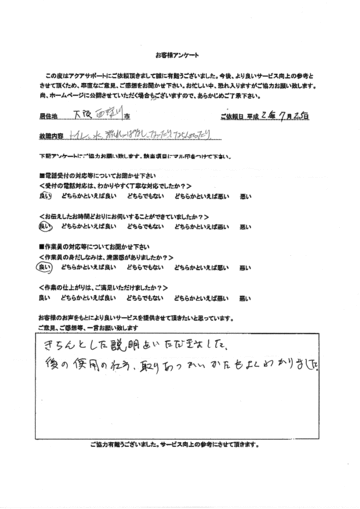 お客様アンケート
この度はアクアサポートにご依頼頂きまして誠に有難うございました。今後、より良いサービス向上の参考と
させて頂くため、率直なご意見、ご感想をお聞かせ下さい。お忙しい中、恐れ入りますがご協力お願い致します。
尚、ホームページに公開させていただく場合もございますので、あらかじめご了承下さい。
居住地 大阪 市 ご依頼日 平成 年 7月 日
故障内容 トイレ 水
下記アンケートにご協力お願い致します。該当項目にマル印をつけて下さい。
■電話受付の対応等についてお聞かせ下さい
＜受付の電話対応は、わかりやすく丁寧な対応でしたか？＞
良い どちらかといえば良い どちらでもない どちらかといえば悪い 悪い
＜お伝えしたお時間どおりにお伺いすることができていましたか？＞
良い どちらかといえば良い どちらでもない どちらかといえば悪い 悪い
■作業員の対応等についてお聞かせ下さい
＜作業員の身だしなみは、清潔感がありましたか？＞
良い どちらかといえば良い どちらでもない どちらかといえば悪い 悪い
＜作業の仕上がりは、ご満足いただけましたか？＞
良い どちらかといえば良い どちらでもない どちらかといえば悪い 悪い
お客様のお声をもとにより良いサービスを提供させて頂きたいと思っています。
ご意見、ご感想等、一言お願い致します
きちんとした説明をいただきました。
後の使用の仕方、取りあつかいかたもよくわかりました。
ご協力有難うございました。サービス向上の参考にさせて頂きます。